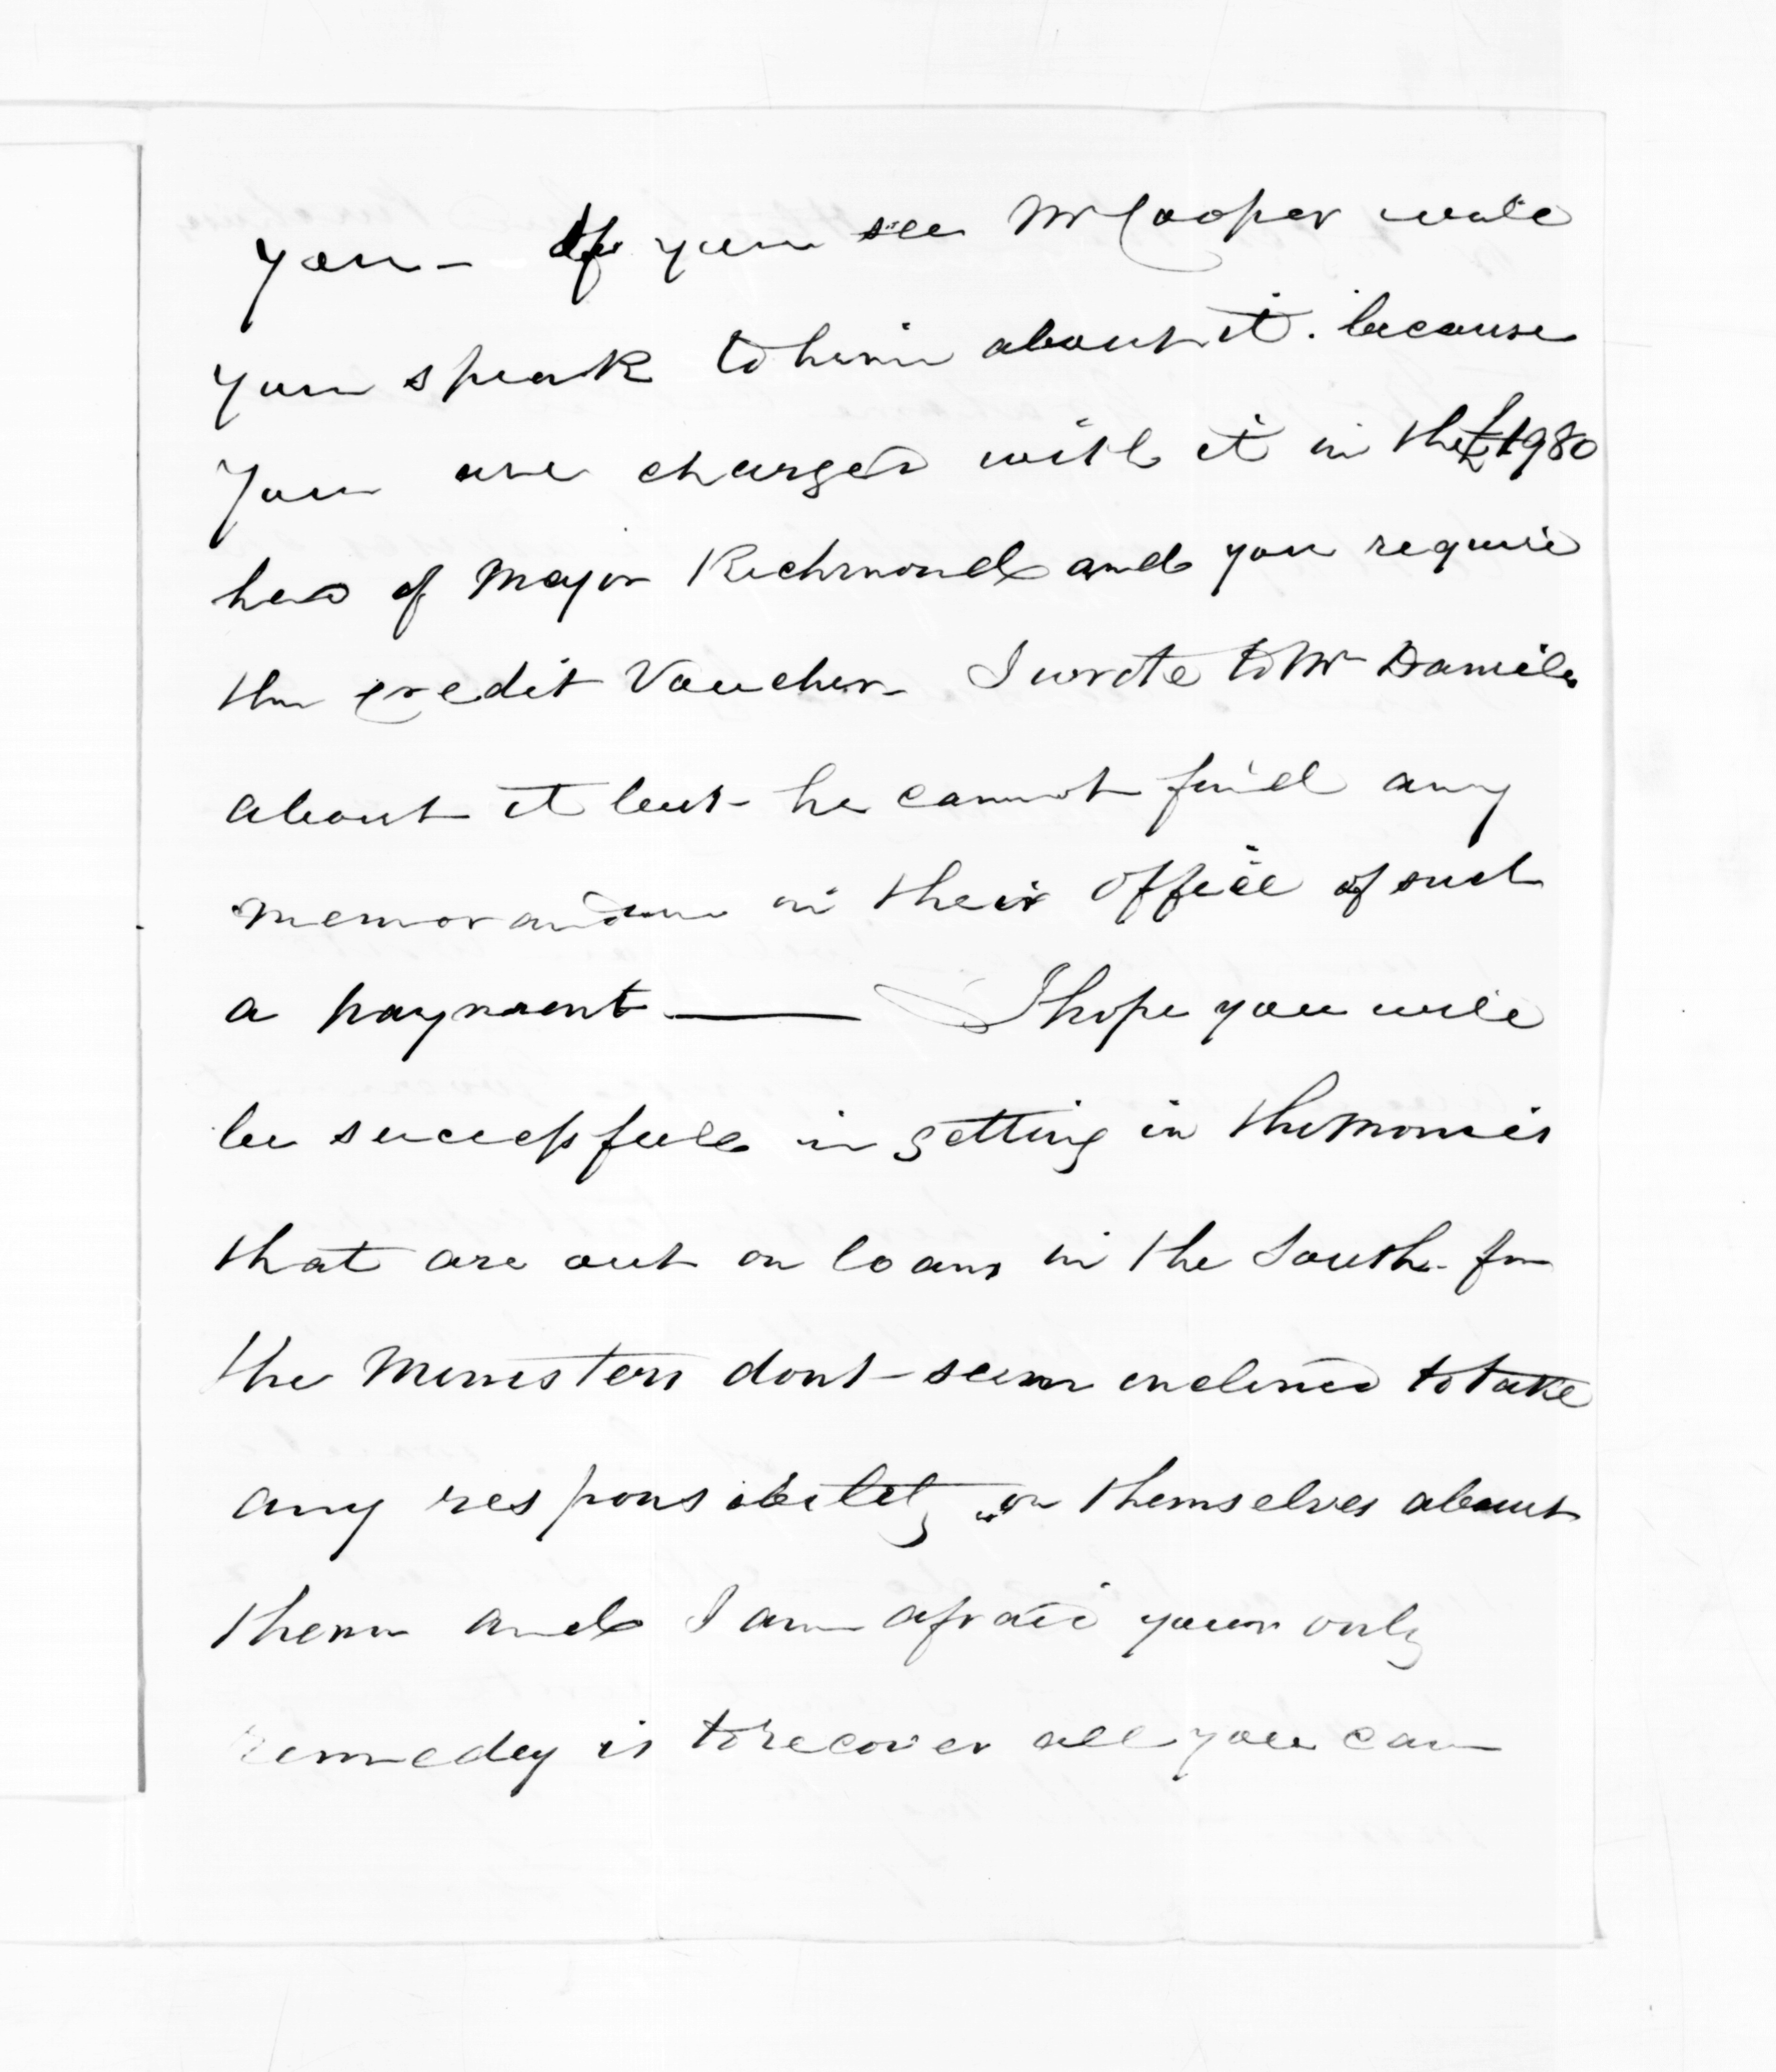 you - If you see Mr Cooper will
you speak to him about it. because
you are charged with it in the £1980
had of Major Richmond and you require
the credit Voucher - I wrote to Mr Daniels
about it but he cannot find any
memorandum in their office of such
a payment — I hope you will
be successfull in getting in the monies
that are out on loans in the South - for
the Ministers dont seem inclined to take
any responsibility on themselves about
them and I am afraid your only
remedy is to recover all you can